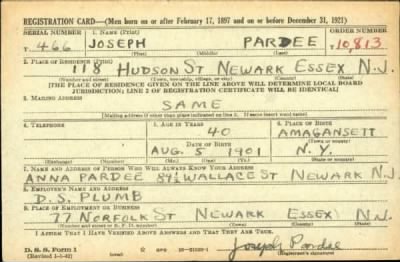 REGISTRATION CARD—(Men born on or after February 17, 1897 and on or before December 31, 1921)
SERIAL NUMBER 1. NAME (Print) ORDER NUMBER
T 466 JOSEPH PARDEE T 10,813
(First) (Middle) (Last)
2. PLACE OF RESIDENCE (Print)
118 HUDSON ST NEWARK ESSEX N.J.
(Number and street) (Town, township, village, or city) (County) (State)
[THE PLACE OF RESIDENCE GIVEN ON THE LINE ABOVE WILL DETERMINE LOCAL BOARD
JURISDICTION; LINE 2 OF REGISTRATION CERTIFICATE WILL BE IDENTICAL]
3. MAILING ADDRESS
SAME
[Mailing address if other than place indicated on line 2. If same insert word same]
4. TELEPHONE 5. AGE IN YEARS 6. PLACE OF BIRTH
40 AMAGANSETT
DATE OF BIRTH (Town or county)
AUG. 5 1901 N.Y.
(Exchange) (Number) (Mo.) (Day) (Yr.) (State or country)
7. NAME AND ADDRESS OF PERSON WHO WILL ALWAYS KNOW YOUR ADDRESS
ANNA PARDEE 84½ WALLACE ST NEWARK N.J.
8. EMPLOYER'S NAME AND ADDRESS
D.S. PLUMB
9. PLACE OF EMPLOYMENT OR BUSINESS
77 NORFOLK ST NEWARK ESSEX N.J.
(Number and street or R. F. D. number) (Town) (County) (State)
I AFFIRM THAT I HAVE VERIFIED ABOVE ANSWERS AND THAT THEY ARE TRUE.
D. S. S. Form 1
(Revised 1-1-42) (over) Joseph Pardee
(Registrant's signature)